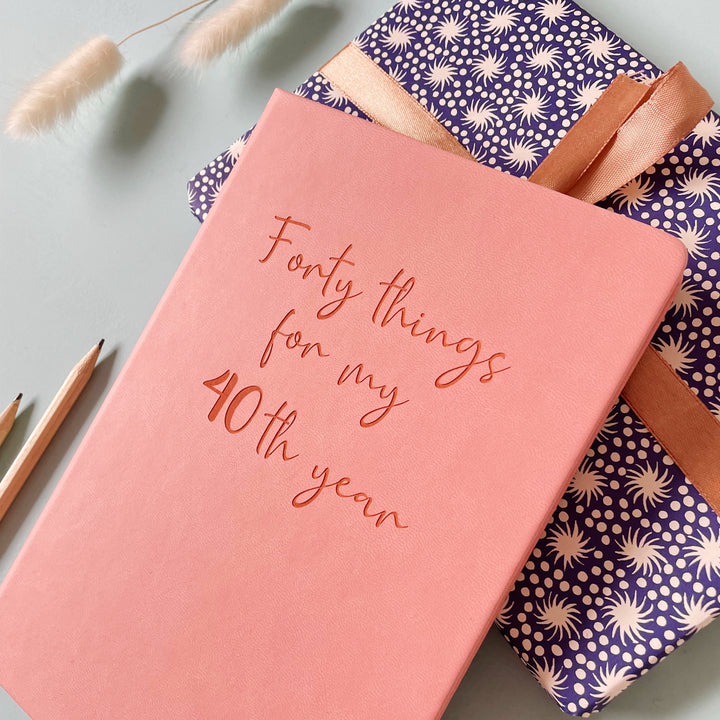 Forty things
for my
40th year